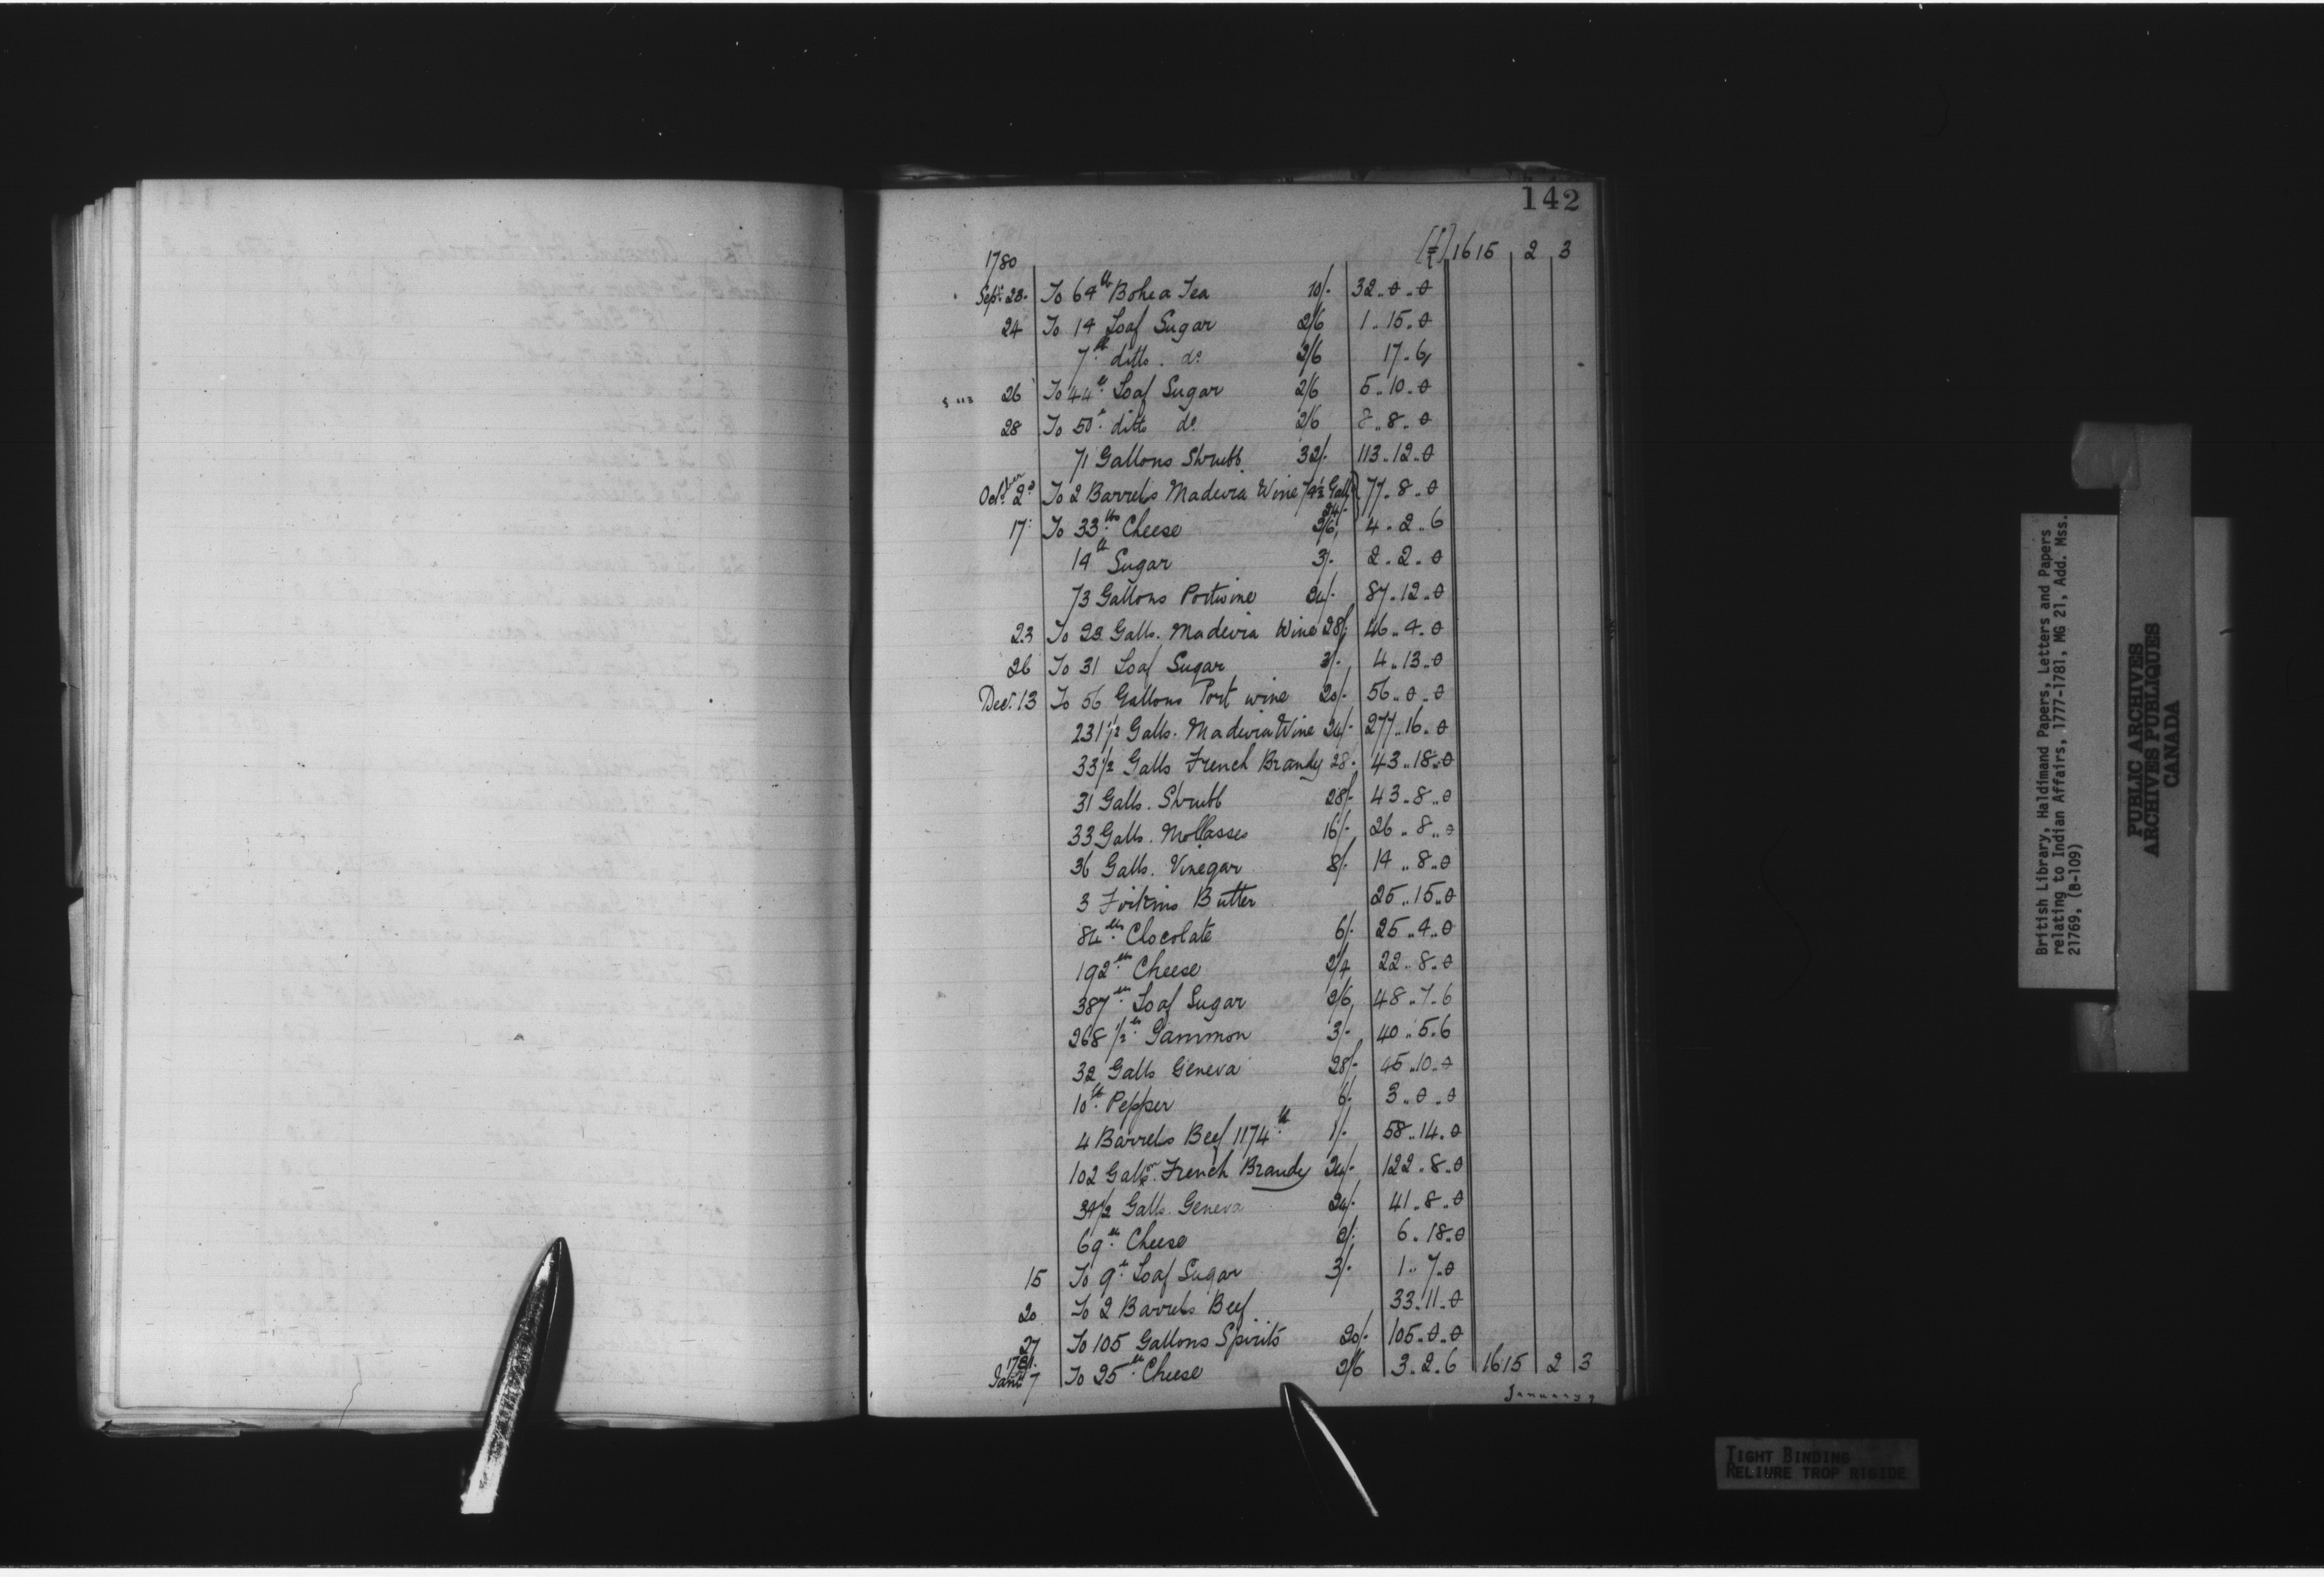 142
1780 [£] 1615 2 3
Sept. 23. To 64 lb Bohea Tea 10/. 32..0..0
24 To 14 Loaf Sugar 2/6 1..15..0
7 lb ditto. do. 2/6 17..6
26 To 44 lb Loaf Sugar 2/6 5..10..0
28 To 50 lb ditto do. 2/6 8..8..0
71 Gallons Shrubb 32/. 113..12..0
October 2d To 2 Barrels Madeira Wine 74½ Galls 24/. 77..8..0
17. To 33 lbs Cheese 2/6 4..2..6
14 lb Sugar 3/. 2..2..0
73 Gallons Portwine 24/. 87..12..0
23 To 33 Galls. Madeira Wine 28/. 46..4..0
26 To 31 Loaf Sugar 3/. 4..13..0
Dec. 13 To 56 Gallons Port wine 20/. 56..0..0
231 1/2 Galls. Madeira Wine 24/. 277..16..0
33 1/2 Galls French Brandy 28. 43..18..0
31 Galls. Shrubb 28/. 43..8..0
33 Galls. Mollasses 16/. 26..8..0
36 Galls. Vinegar 8/. 14..8..0
3 Firkins Butter 25..15..0
84 lbs Clocolate 6/. 25..4..0
192 lbs Cheese 2/4 22..8..0
387 lbs Loaf Sugar 2/6 48..7..6
268 1/2 lb Gammon 3/. 40..5..6
32 Galls Geneva 28/. 45..10..0
10 lb Pepper 6/. 3..0..0
4 Barrels Beef 1174 lb 1/. 58..14..0
102 Galls. French Brandy 24/. 122..8..0
34 1/2 Galls. Geneva 24/. 41..8..0
69 lb Cheese 2/. 6..18..0
15 To 9 lb Loaf Sugar 3/. 1..7..0
20 To 2 Barrels Beef 33..11..0
27 To 105 Gallons Spirits 20/. 105..0..0
1781.
Jany 7 To 25 lb Cheese 2/6 3..2..6 1615 2 3
January 9
British Library, Haldimand Papers, Letters and Papers
relating to Indian Affairs, 1777-1781, MG 21, Add. Mss.
21769, (B-109)
PUBLIC ARCHIVES
ARCHIVES PUBLIQUES
CANADA
TIGHT BINDING
RELIURE TROP RIGIDE